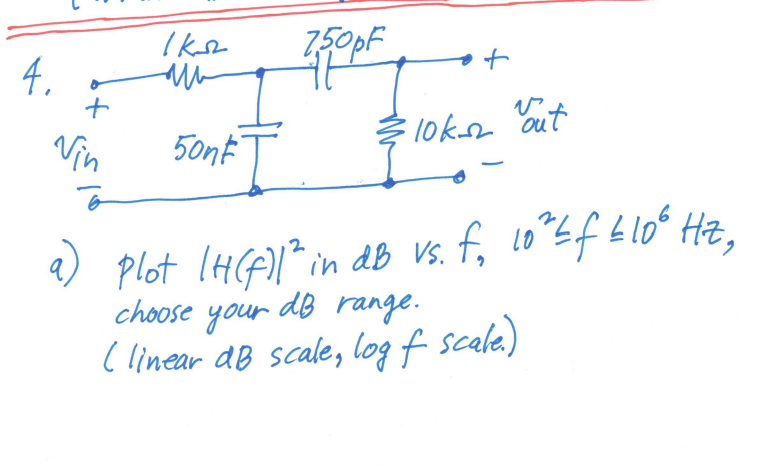 1kΩ 750pF
4. +
+
Vin 50nF 10kΩ Vout
- -
a) plot |H(f)|² in dB vs. f, 10² ≤ f ≤ 10⁶ Hz,
choose your dB range.
(linear dB scale, log f scale.)